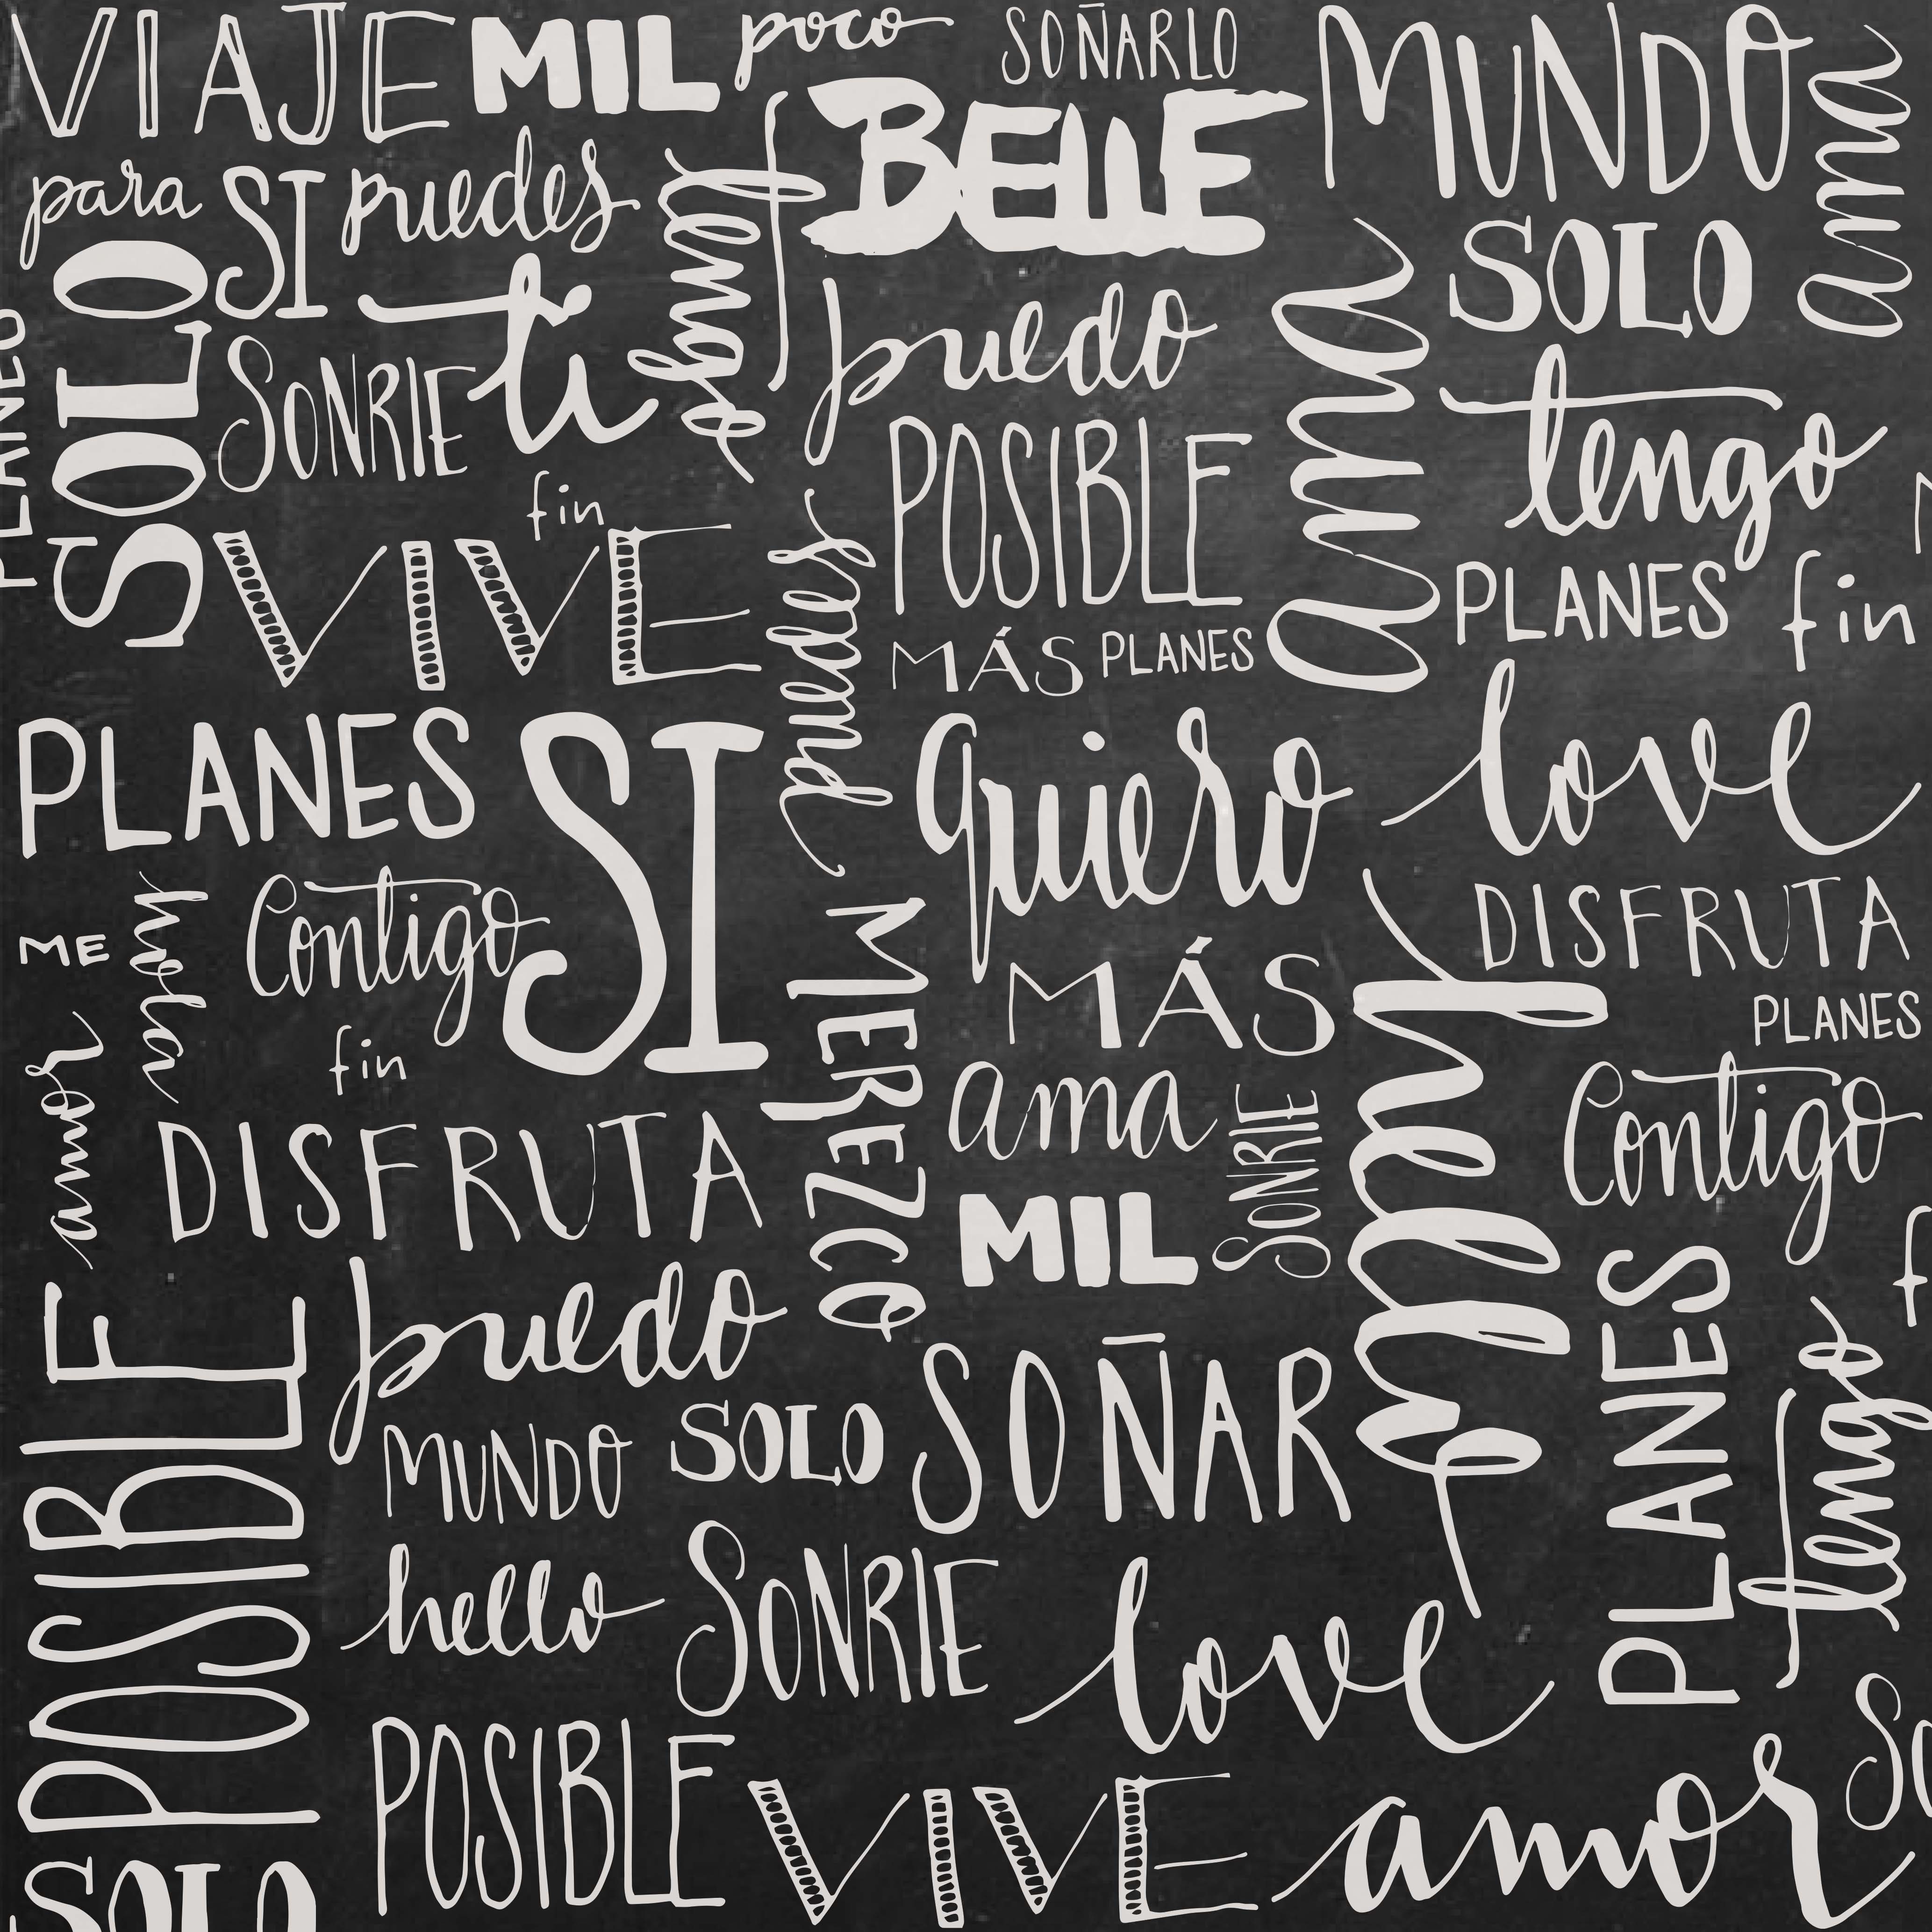 VIAJE MIL poco SOÑARLO MUNDO ama
BELLE
para SI puedes tiempo
SOLO
SOLO
ti
puedo
ama
PLANES
SONRIE
tengo
POSIBLE
fin
VIVE
puedes
PLANES fin
MÁS PLANES
love
PLANES SI
quiero
ME
hola
Contigo
MEREZCO
DISFRUTA
MÁS
PLANES
amor
fin
ama
SONRIE
tiempo
Contigo
DISFRUTA
MIL
POSIBLE
puedo
PLANES
tengo
SOÑAR
MUNDO SOLO
hello SONRIE
love
POSIBLE
VIVE
amor
SO
SOLO